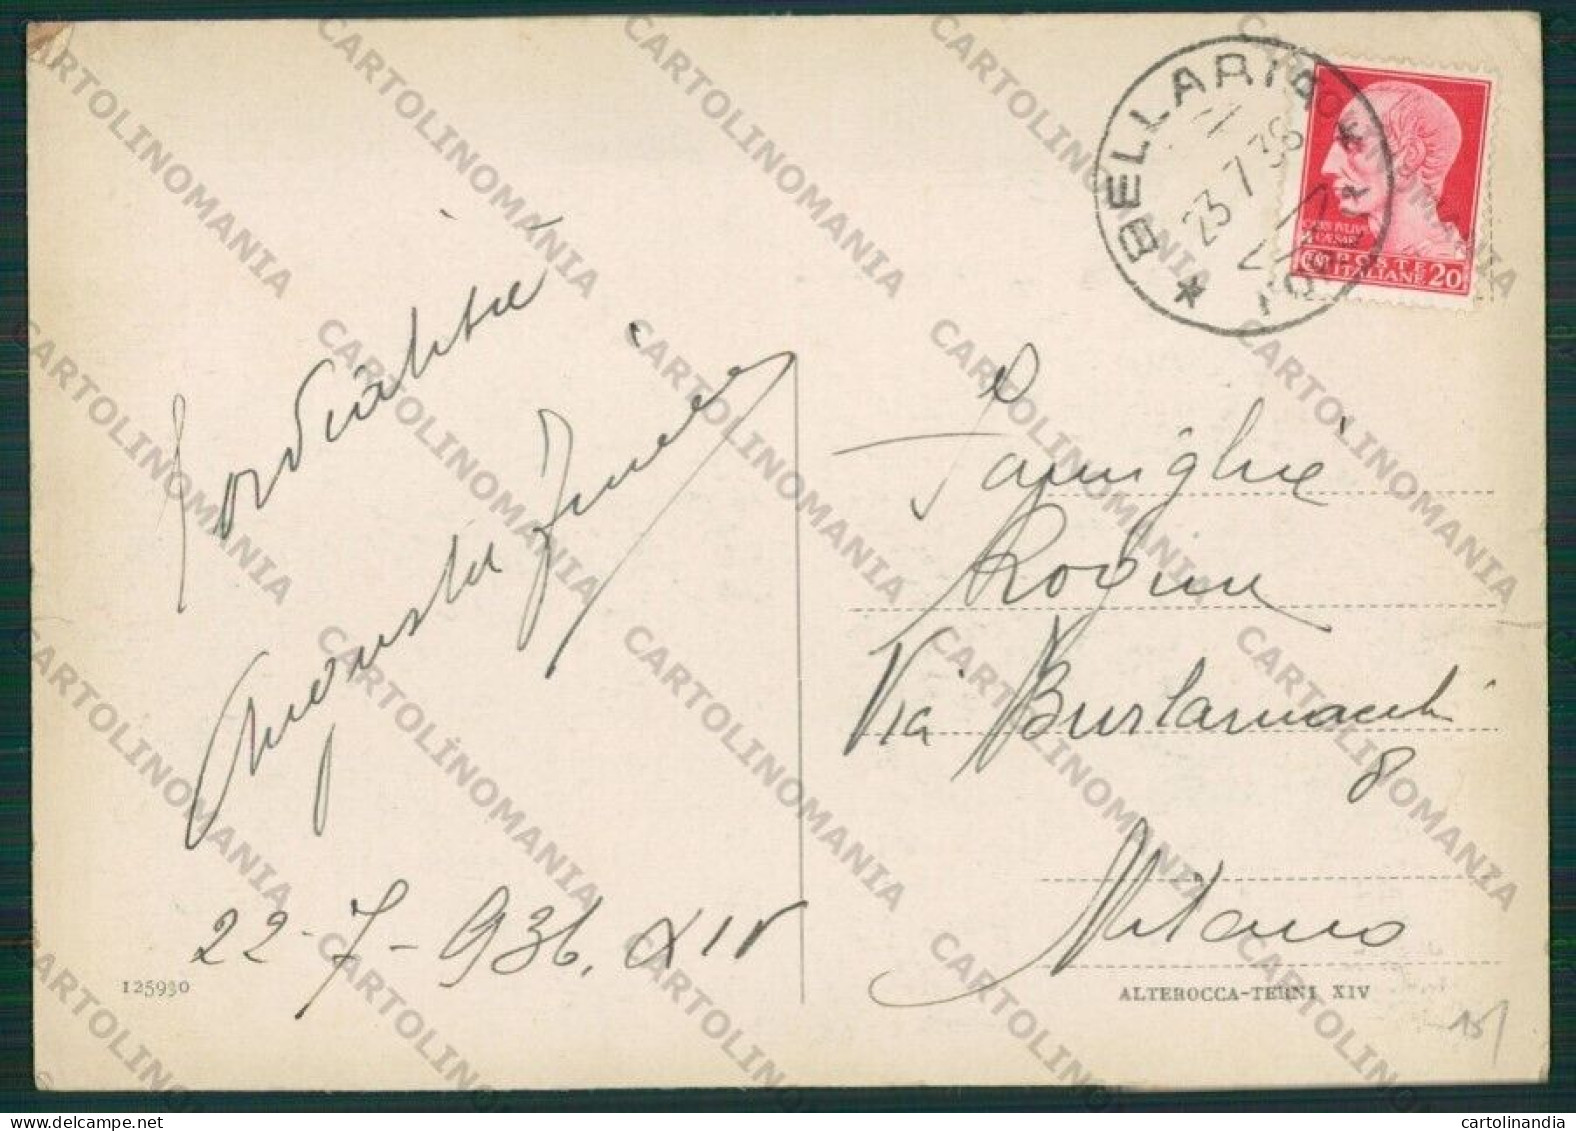 BELLARIA
23.7.36
POSTE
ITALIANE
CENT 20
Cordialità
Augusta
22-7-936. XIV
Famiglia
Via Burlamacchi
8
Milano
125930
ALTEROCCA-TERNI XIV
15
CARTOLINOMANIA
cartolinandia